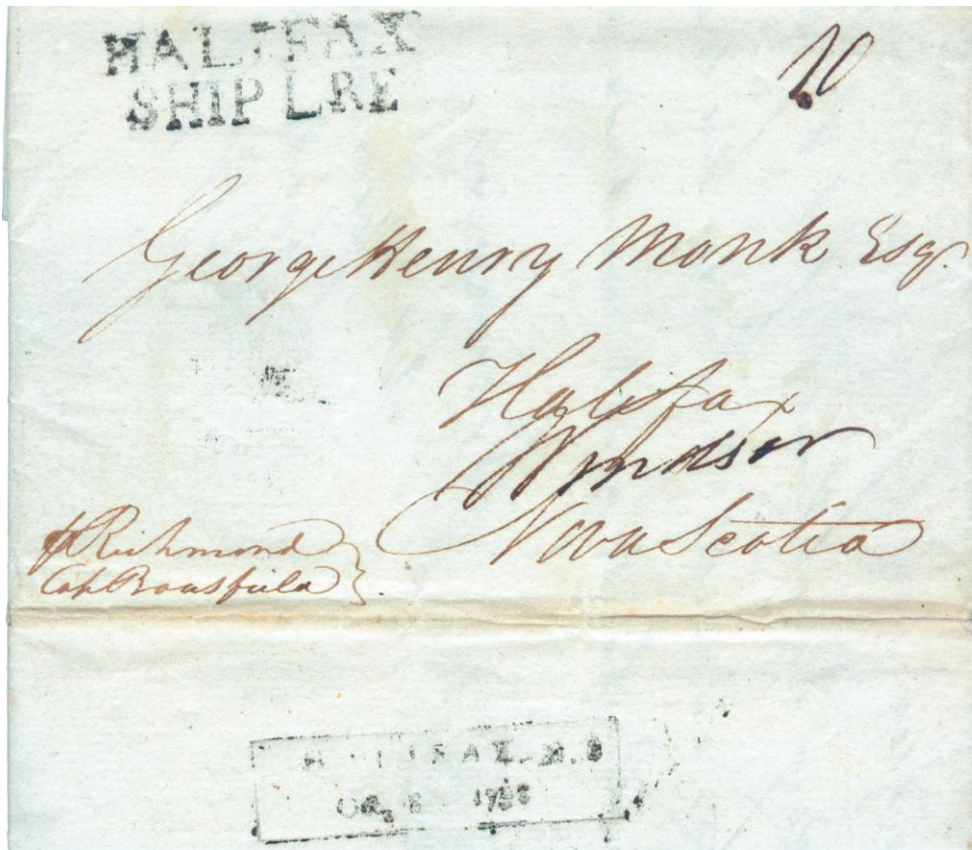 HALIFAX
SHIP LRE
10
George Henry Monk Esqr.
Halifax
Windsor
Nova Scotia
pr Richmond
Cap Bousfield
HALIFAX. N.S